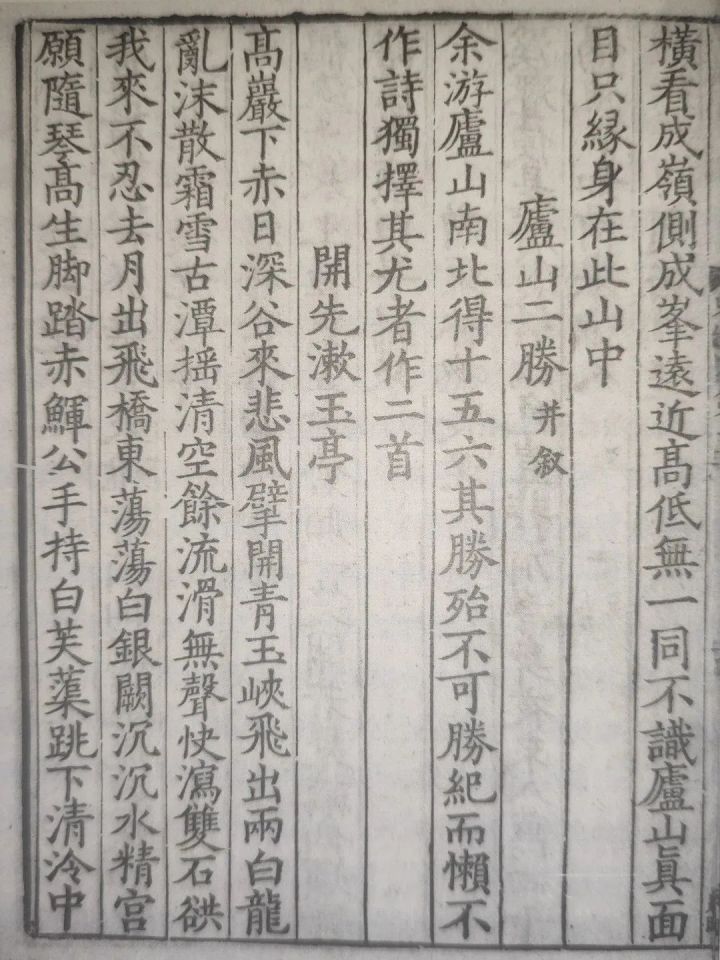 橫看成嶺側成峯遠近髙低無一同不識廬山眞面
目只緣身在此山中
廬山二勝并叙
余游廬山南北得十五六其勝殆不可勝紀而懶不
作詩獨擇其尤者作二首
開先漱玉亭
髙巖下赤日深谷來悲風擘開青玉峽飛出兩白龍
亂沫散霜雪古潭摇清空餘流滑無聲快瀉雙石谼
我來不忍去月出飛橋東蕩蕩白銀闕沉沉水精宫
願隨琴髙生脚踏赤鯶公手持白芙蕖跳下清泠中